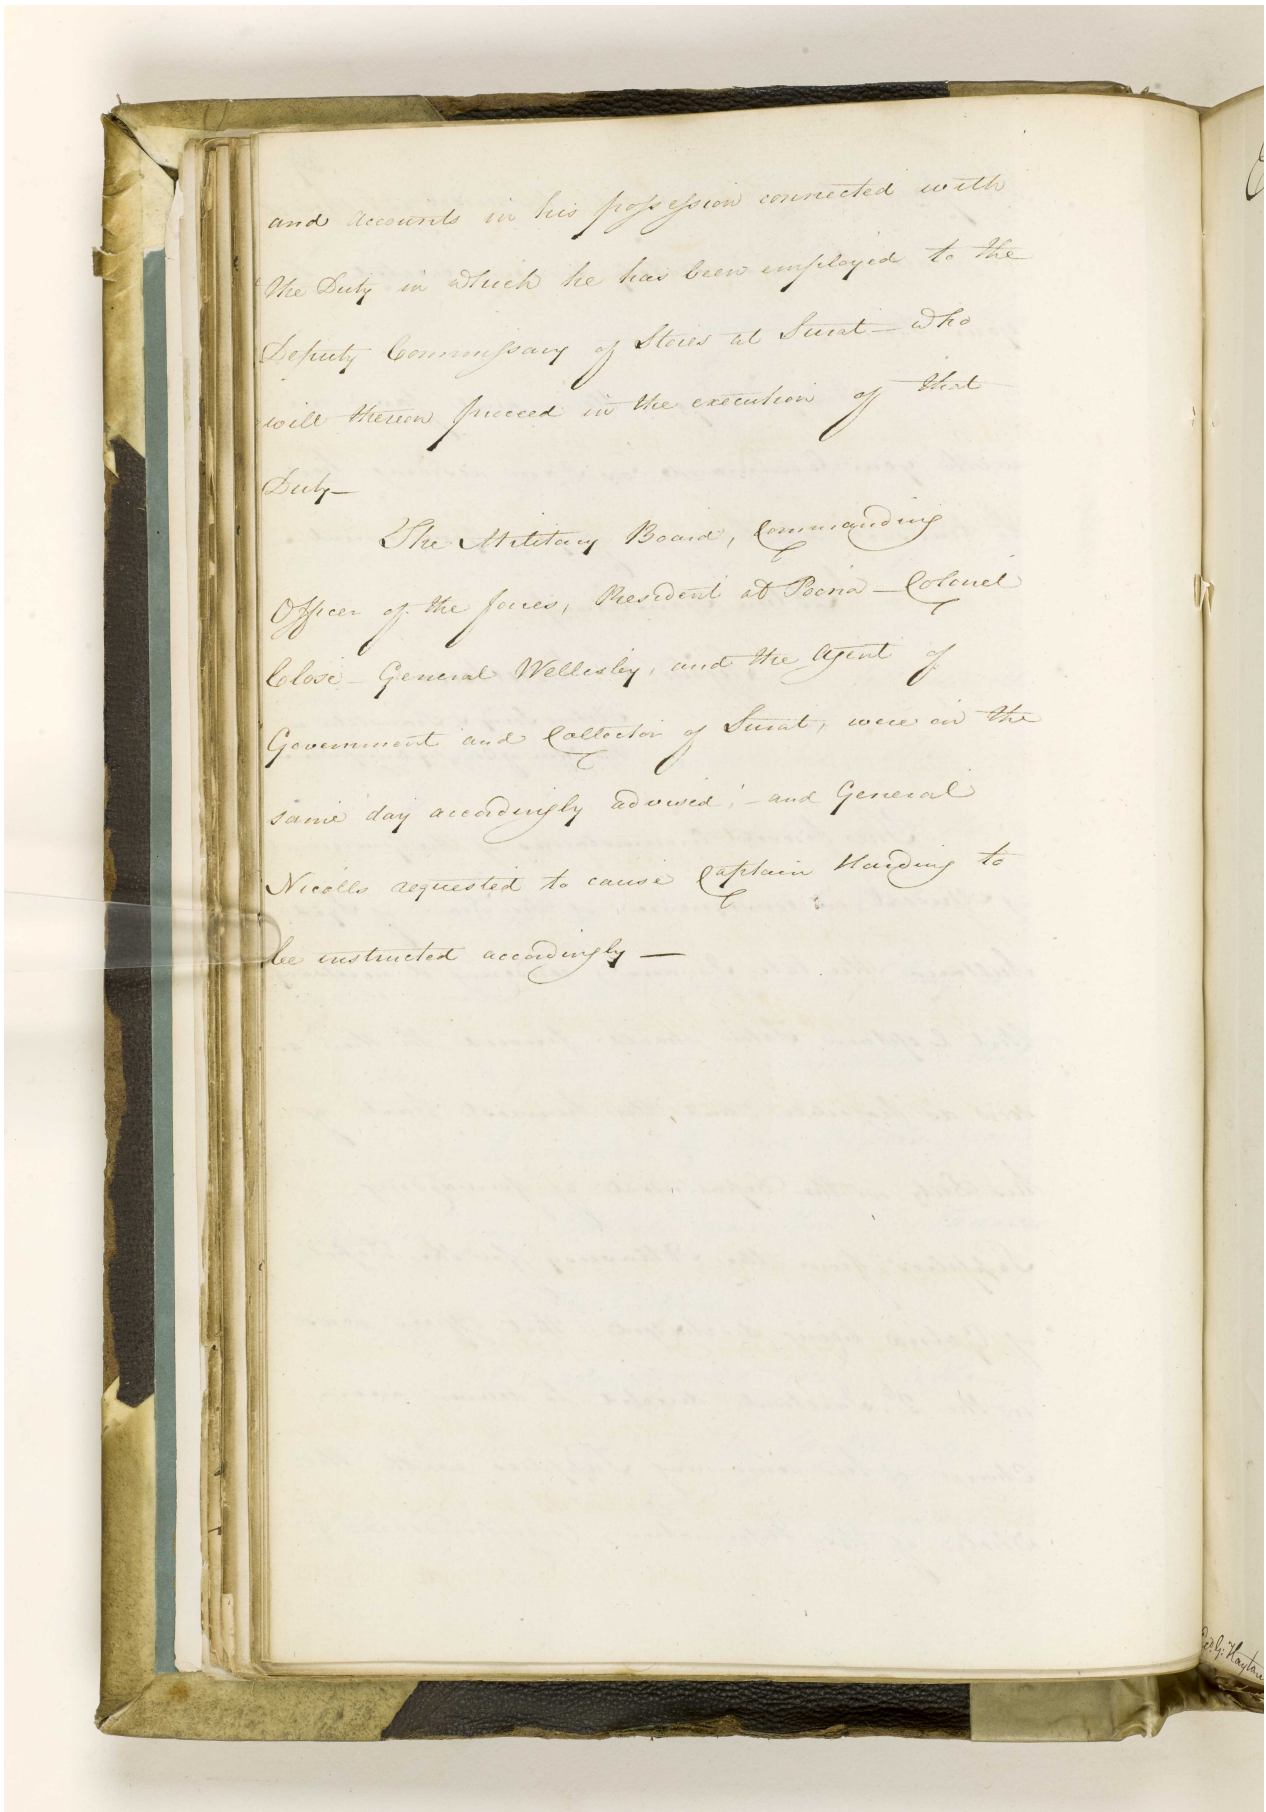 and accounts in his possession connected with
the Duty in which he has been employed to the
Deputy Commissary of Stores at Surat – who
will thereon proceed in the execution of that
Duty –
The Military Board, Commanding
Officer of the forces, Resident at Poona – Colonel
Close – General Wellesley, and the Agent of
Government and Collector of Surat, were on the
same day accordingly advised; – and General
Nicolls requested to cause Captain Harding to
be instructed accordingly –